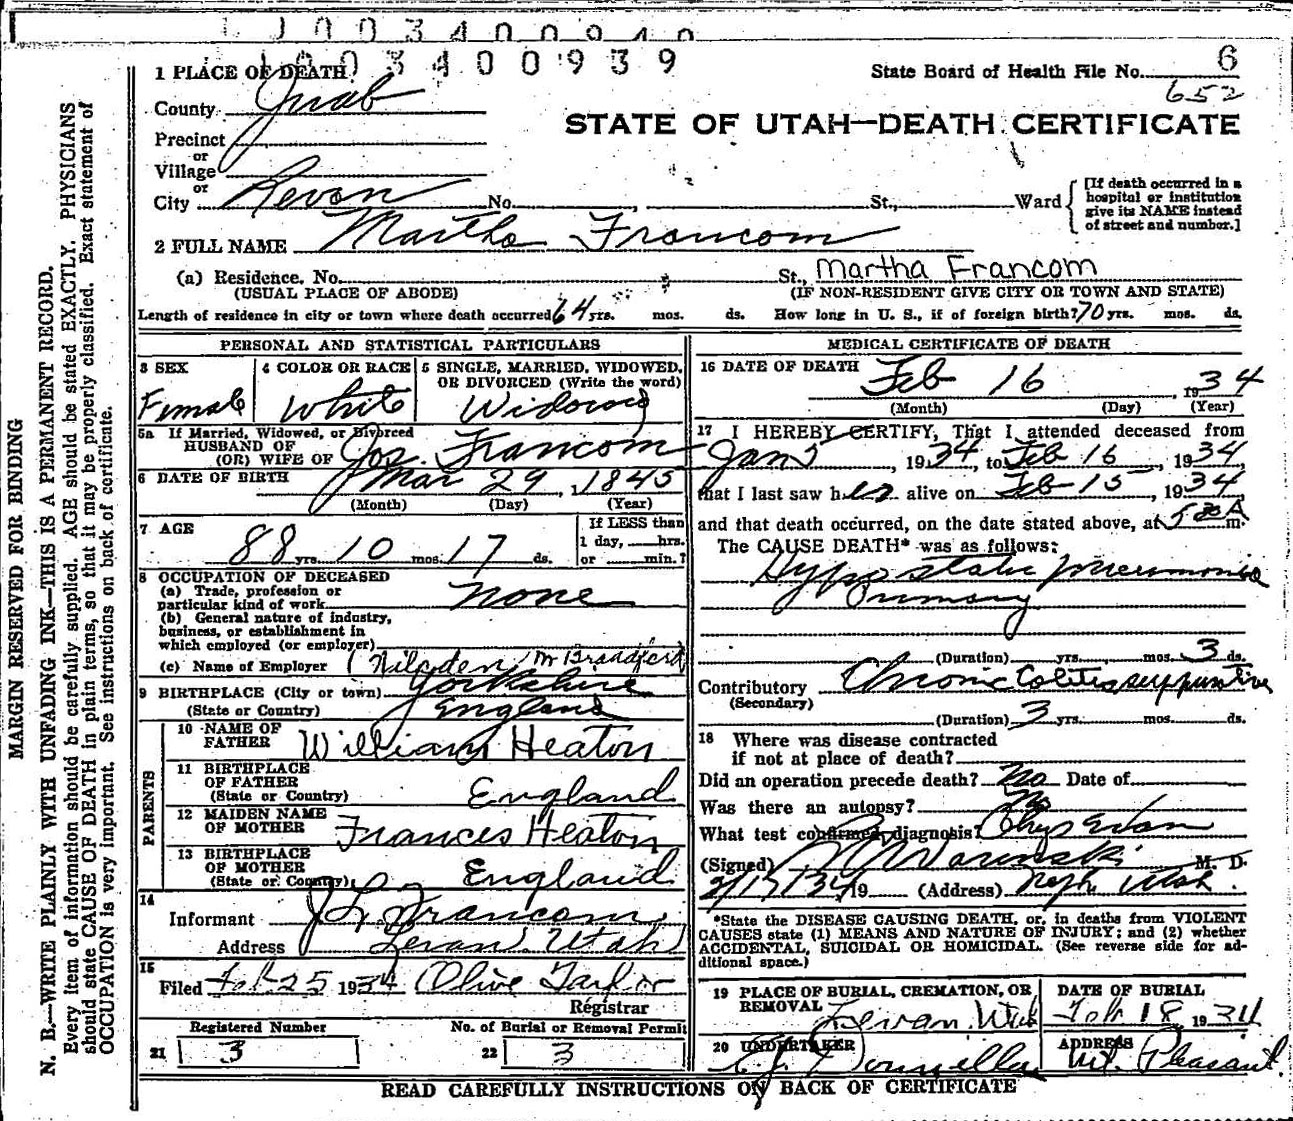 1003400940
1003400939
1 PLACE OF DEATH
State Board of Health File No. 6
652
County Juab
STATE OF UTAH—DEATH CERTIFICATE
Precinct
or
Village
or
City Levan No. , St., Ward
[If death occurred in a hospital or institution give its NAME instead of street and number.]
2 FULL NAME Martha Francom
(a) Residence. No. St., Martha Francom
(USUAL PLACE OF ABODE) (IF NON-RESIDENT GIVE CITY OR TOWN AND STATE)
Length of residence in city or town where death occurred 64 yrs. mos. ds. How long in U. S., if of foreign birth? 70 yrs. mos. ds.
PERSONAL AND STATISTICAL PARTICULARS
3 SEX Female
4 COLOR OR RACE White
5 SINGLE, MARRIED, WIDOWED, OR DIVORCED (Write the word) Widowed
5a If Married, Widowed, or Divorced
HUSBAND OF
(OR) WIFE OF Jos. Francom
6 DATE OF BIRTH Mar 29, 1845
(Month) (Day) (Year)
7 AGE 88 yrs. 10 mos. 17 ds.
If LESS than
1 day, hrs.
or min.?
8 OCCUPATION OF DECEASED
(a) Trade, profession or
particular kind of work none
(b) General nature of industry,
business, or establishment in
which employed (or employer)
(c) Name of Employer
9 BIRTHPLACE (City or town) Yorkshire
(State or Country) England
PARENTS
10 NAME OF FATHER William Heaton
11 BIRTHPLACE OF FATHER (State or Country) England
12 MAIDEN NAME OF MOTHER Frances Heaton
13 BIRTHPLACE OF MOTHER (State or Country) England
14
Informant J L Francom
Address Levan Utah
15
Filed Feb 25 1934 Olive Taylor
Registrar
Registered Number
21 3
No. of Burial or Removal Permit
22 3
MEDICAL CERTIFICATE OF DEATH
16 DATE OF DEATH Feb 16, 1934
(Month) (Day) (Year)
17 I HEREBY CERTIFY, That I attended deceased from
Jan 5, 1934, to Feb 16, 1934,
that I last saw her alive on Feb 15, 1934
and that death occurred, on the date stated above, at 5 30 A m.
The CAUSE DEATH* was as follows:
Hypostatic pneumonia
Primary
(Duration) yrs. mos. 3 ds.
Contributory Chronic Colitis suppurative
(Secondary)
(Duration) 3 yrs. mos. ds.
18 Where was disease contracted
if not at place of death?
Did an operation precede death? No Date of
Was there an autopsy? No
What test confirmed diagnosis? Phys Exam
(Signed) M. D.
2/17/34 19 (Address) Neph Utah.
*State the DISEASE CAUSING DEATH, or, in deaths from VIOLENT
CAUSES state (1) MEANS AND NATURE OF INJURY; and (2) whether
ACCIDENTAL, SUICIDAL OR HOMICIDAL. (See reverse side for ad-
ditional space.)
19 PLACE OF BURIAL, CREMATION, OR REMOVAL Levan Utah
DATE OF BURIAL Feb 18 1934
20 UNDERTAKER
ADDRESS Mt. Pleasant.
READ CAREFULLY INSTRUCTIONS ON BACK OF CERTIFICATE
MARGIN RESERVED FOR BINDING
N. B.—WRITE PLAINLY WITH UNFADING INK—THIS IS A PERMANENT RECORD.
Every item of information should be carefully supplied. AGE should be stated EXACTLY. PHYSICIANS
should state CAUSE OF DEATH in plain terms, so that it may be properly classified. Exact statement of
OCCUPATION is very important. See instructions on back of certificate.